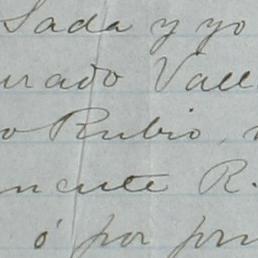 Sada y yo
urado Vall
o Rubio,
ncute R.
ó por pru